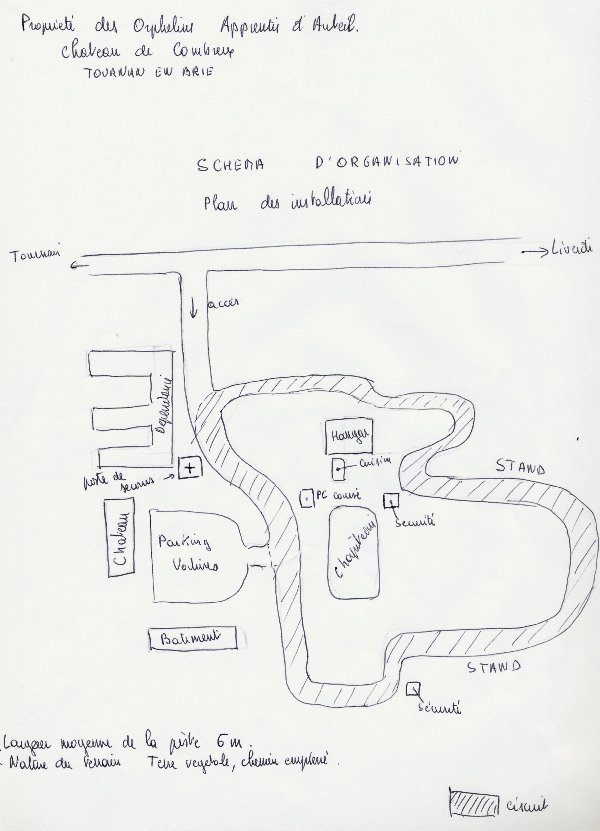 Propriété des Orphelins Apprentis d'Auteuil.
Chateau de Combreux
TOURNAN EN BRIE
SCHEMA D'ORGANISATION
Plan des installations
Tournan
Liverdi
acces
Dependance
Hangar
Cuisine
STAND
poste de secours
PC course
Securité
Chateau
Parking
Voitures
Chapiteau
Batiment
STAND
Sécurité
Largeur moyenne de la piste 6 m.
- Nature du Terrain Terre vegetale, chemin empierré.
circuit